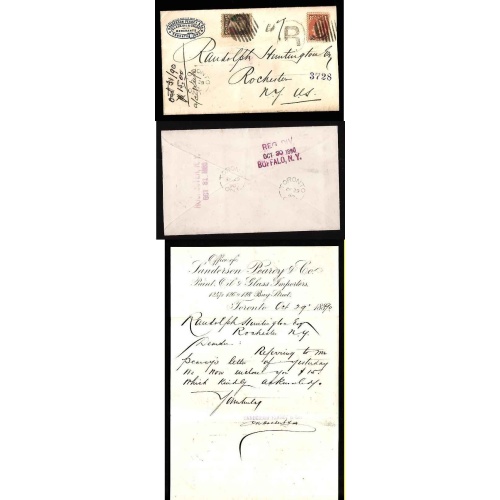 Randolph Huntington Esq
Rochester
N.Y. U.S.
R
3728
Oct 31/90
$15.00
REG'D
OCT 30 1890
BUFFALO, N.Y.
TORONTO
Office of
Sanderson Pearcy & Co
Paint, Oil & Glass Importers,
Bay Street,
Toronto Oct 29 1890
Randolph Huntington Esq
Rochester N.Y.
Dear Sir
Referring to Mr
Pearcy's letter of yesterday
We now inclose you $15
Which kindly acknowledge
Yours truly